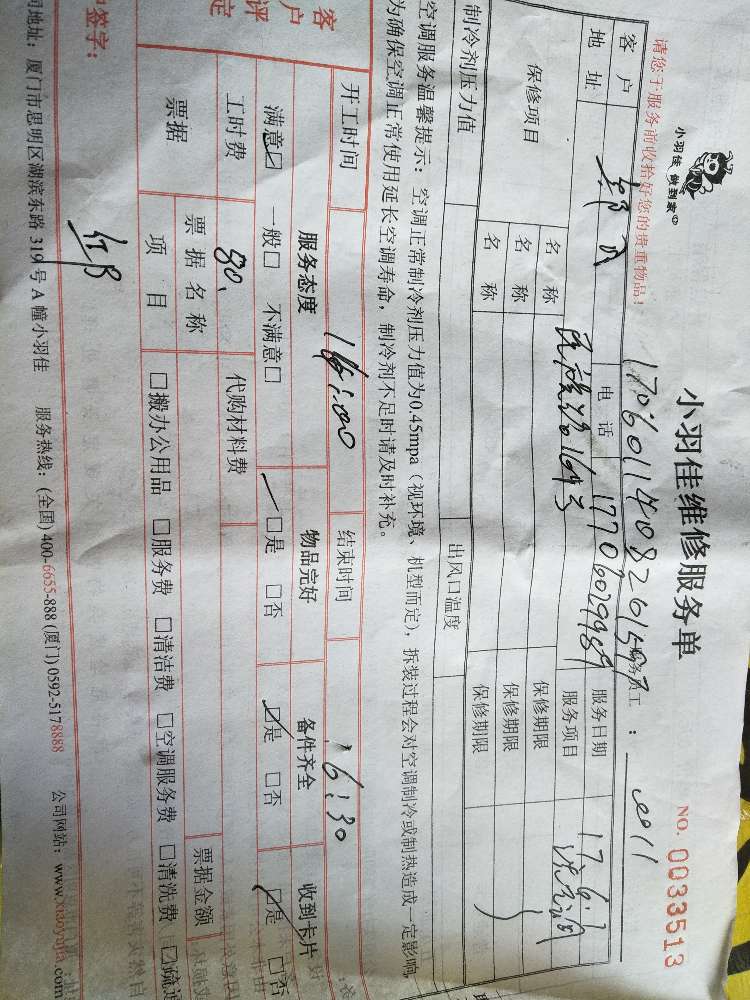 小羽佳 做到家
小羽佳维修服务单
NO. 0033513
请您于服务前收拾好您的贵重物品！
服务员工：
客户
电话
17706029989
服务日期
17.6.7
地址
民族路164号
服务项目
保修项目
名称
保修期限
名称
保修期限
名称
保修期限
制冷剂压力值
出风口温度
空调服务温馨提示：空调正常制冷剂压力值为0.45mpa（视环境、机型而定），拆装过程会对空调制冷或制热造成一定影响，
为确保空调正常使用延长空调寿命，制冷剂不足时请及时补充。
开工时间
结束时间
16:30
客户评定
服务态度
物品完好
备件齐全
收到卡片
满意☑ 一般□ 不满意□
□是 □否
☑是 □否
☑是 □否
工时费
80.
代购材料费
票据
票据名称
票据金额
项目
□搬办公用品 □服务费 □清洁费 □空调服务费 □清洗费 ☑疏通
签字：
司地址：厦门市思明区湖滨东路319号A幢小羽佳 服务热线：(全国) 400-6655-888 (厦门) 0592-5178888 公司网站：www.xiaoyujia.com